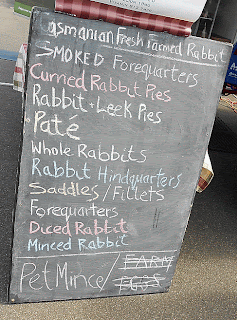 Tasmanian Fresh Farmed Rabbit
SMOKED Forequarters
Curried Rabbit Pies
Rabbit + Leek Pies
Paté
Whole Rabbits
Rabbit Hindquarters
Saddles / Fillets
Forequarters
Diced Rabbit
Minced Rabbit
Pet Mince / FARM
EGGS